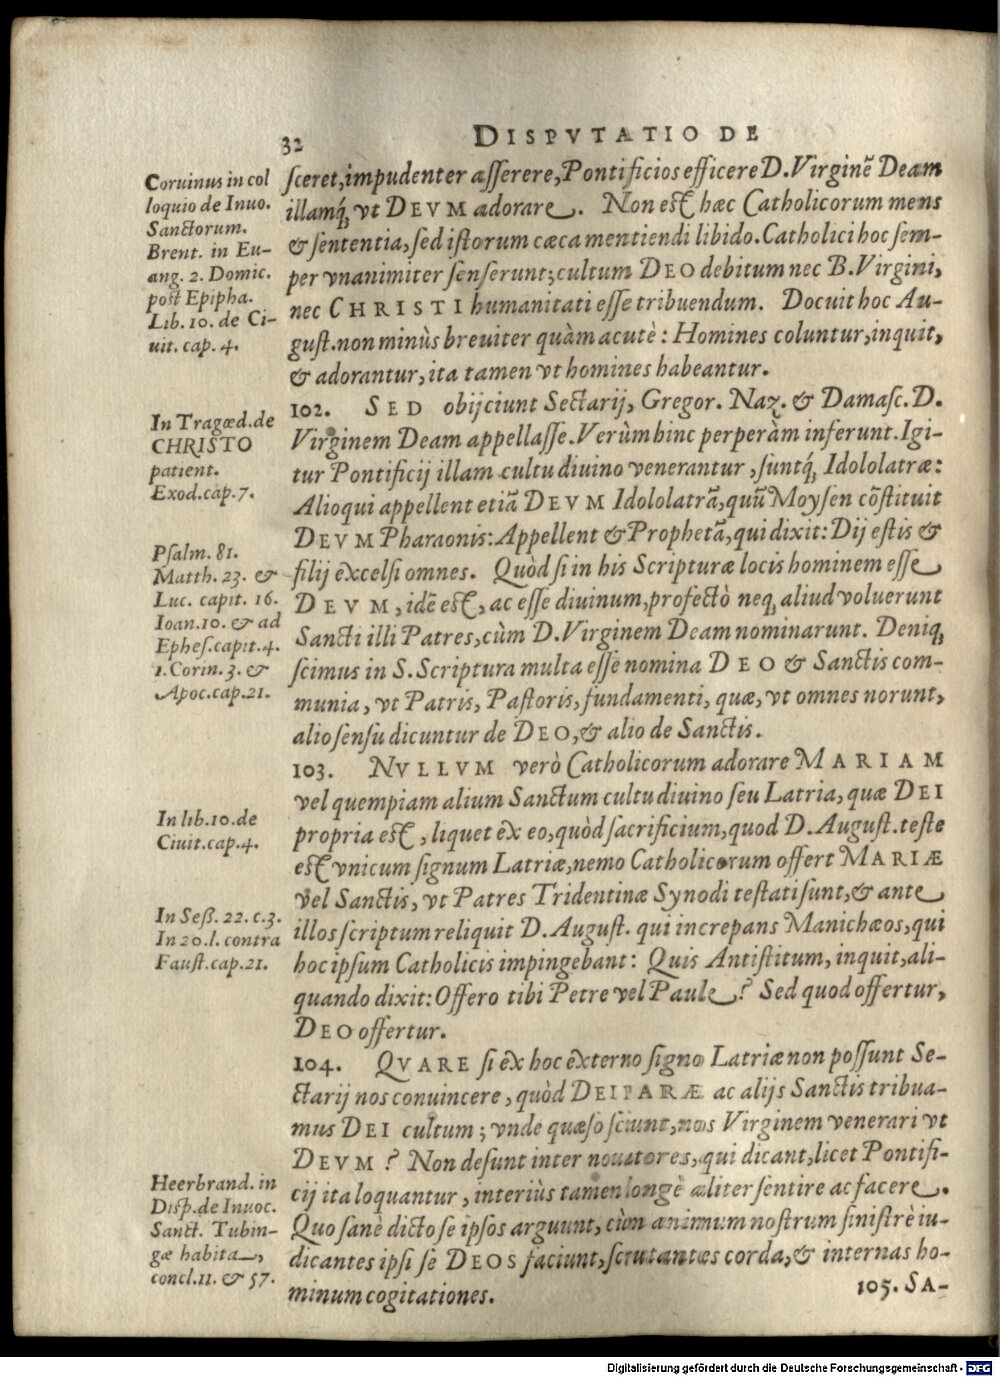 32 DISPVTATIO DE
Coruinus in col
loquio de Inuo.
Sanctorum.
Brent. in Eu-
ang. 2. Domic.
post Epipha.
Lib. 10. de Ci-
uit. cap. 4.
ſceret, impudenter aſſerere, Pontificios efficere D. Virginē Deam
illamq́; vt DEVM adorare. Non est hæc Catholicorum mens
& ſententia, ſed iſtorum cæca mentiendi libido. Catholici hoc ſem-
per vnanimiter ſenſerunt; cultum DEO debitum nec B. Virgini,
nec CHRISTI humanitati eſſe tribuendum. Docuit hoc Au-
guſt. non minùs breuiter quàm acutè: Homines coluntur, inquit,
& adorantur, ita tamen vt homines habeantur.
In Tragœd. de
CHRISTO
patient.
Exod. cap. 7.
Pſalm. 81.
Matth. 23. &
Luc. capit. 16.
Ioan. 10. & ad
Epheſ. capit. 4.
1. Corin. 3. &
Apoc. cap. 21.
102. SED obijciunt Sectarij, Gregor. Naz. & Damaſc. D.
Virginem Deam appellaſſe. Verùm hinc perperàm inferunt. Igi-
tur Pontificij illam cultu diuino venerantur, ſuntq́; Idololatræ:
Alioqui appellent etiā DEVM Idololatrā, quū Moyſen cōſtituit
DEVM Pharaonis: Appellent & Prophetā, qui dixit: Dij eſtis &
filij excelſi omnes. Quòd ſi in his Scripturæ locis hominem eſſe
DEVM, idē est, ac eſſe diuinum, profectò neq; aliud voluerunt
Sancti illi Patres, cùm D. Virginem Deam nominarunt. Deniq;
ſcimus in S. Scriptura multa eſſe nomina DEO & Sanctis com-
munia, vt Patris, Paſtoris, fundamenti, quæ, vt omnes norunt,
alio ſenſu dicuntur de DEO, & alio de Sanctis.
In lib. 10. de
Ciuit. cap. 4.
In Seß. 22. c. 3.
In 20. l. contra
Fauſt. cap. 21.
103. NVLLVM verò Catholicorum adorare MARIAM
vel quempiam alium Sanctum cultu diuino ſeu Latria, quæ DEI
propria est, liquet ex eo, quòd ſacrificium, quod D. Auguſt. teſte
est vnicum ſignum Latriæ, nemo Catholicorum offert MARIÆ
vel Sanctis, vt Patres Tridentinæ Synodi teſtati ſunt, & ante
illos ſcriptum reliquit D. Auguſt. qui increpans Manichæos, qui
hoc ipſum Catholicis impingebant: Quis Antiſtitum, inquit, ali-
quando dixit: Offero tibi Petre vel Paule? Sed quod offertur,
DEO offertur.
Heerbrand. in
Diſp. de Inuoc.
Sanct. Tubin-
gæ habita,
concl. 11. & 57.
104. QVARE ſi ex hoc externo ſigno Latriæ non poſſunt Se-
ctarij nos conuincere, quòd DEIPARÆ ac alijs Sanctis tribua-
mus DEI cultum; vnde quæſo ſciunt, nos Virginem venerari vt
DEVM? Non deſunt inter nouatores, qui dicant, licet Pontifi-
cij ita loquantur, interiùs tamen longè aliter ſentire ac facere.
Quo ſanè dicto ſe ipſos arguunt, cùm animum noſtrum ſiniſtrè iu-
dicantes ipſi ſe DEOS faciunt, ſcrutantes corda, & internas ho-
minum cogitationes.
105. SA-
Digitalisierung gefördert durch die Deutsche Forschungsgemeinschaft - DFG